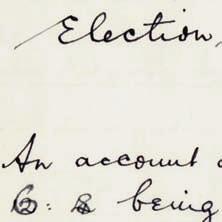 Election,
An account
being